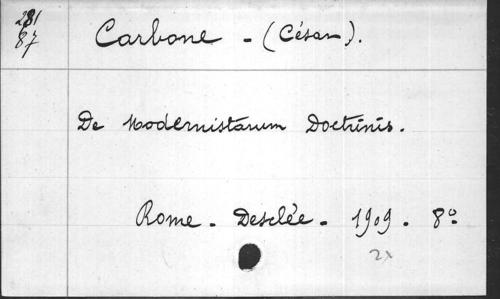 281
87
Carbone - (César).
De Modernistarum Doctrinis.
Rome - Desclée - 1909. 8º
2x